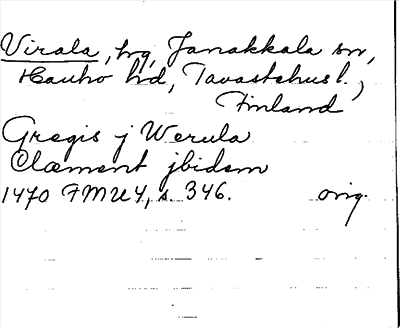 Virala, hg, Janakkala sn,
Hauho hd, Tavastehusl.,
Finland
Gregis j Werula
Clæment jbidem
1470 FMU 4, s. 346. orig.